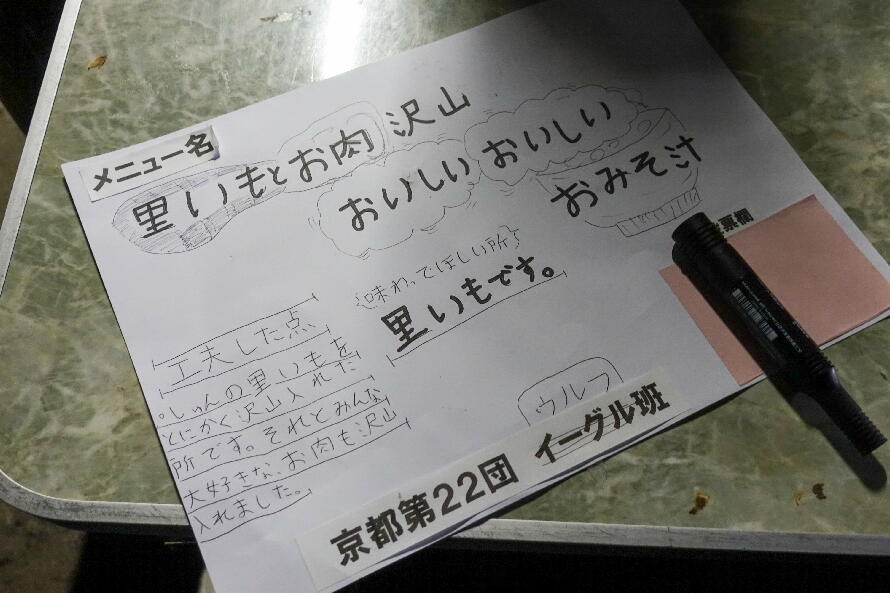 メニュー名
里いもとお肉沢山
おいしいおいしい
おみそ汁
票欄
味わってほしい所
里いもです。
工夫した点
・しゅんの里いもを
とにかく沢山入れた
所です。それとみんな
大好きな、お肉も沢山
入れました。
ウルフ
京都第22団 イーグル班